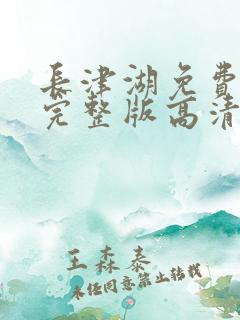 長津湖免費
完整版高清
王森泰
未经同意禁止转载